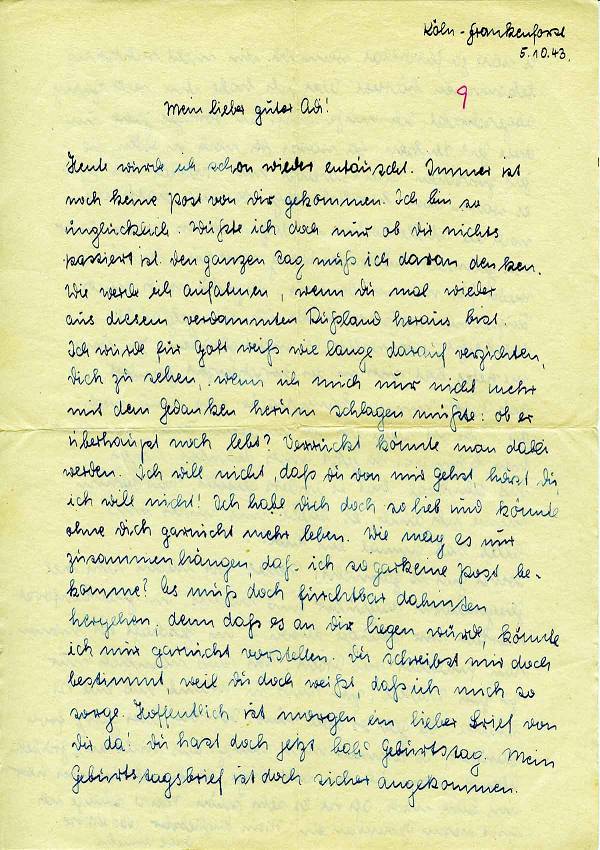 Köln-Frankenforst
5.10.43.
9
Mein lieber guter Adi!
Heute wurde ich schon wieder entäuscht. Immer ist
noch keine Post von dir gekommen. Ich bin so
unglücklich. Wüßte ich doch nur ob dir nichts
passiert ist. Den ganzen Tag muß ich daran denken.
Wie werde ich aufatmen, wenn du mal wieder
aus diesem verdammten Rußland heraus bist.
Ich würde für Gott weiß wie lange darauf verzichten,
dich zu sehen, wenn ich mich nur nicht mehr
mit dem Gedanken herum schlagen müßte: ob er
überhaupt noch lebt? Verrückt könnte man dabei
werden. Ich will nicht, daß du von mir gehst hörst du,
ich will nicht! Ich habe dich doch so lieb und könnte
ohne dich garnicht mehr leben. Wie mag es nur
zusammenhängen, daß ich so garkeine Post be-
komme? Es muß doch furchtbar dahinten
hergehen, denn daß es an dir liegen würde, könnte
ich mir garnicht vorstellen. Du schreibst mir doch
bestimmt, weil du doch weißt, daß ich mich so
sorge. Hoffentlich ist morgen ein lieber Brief von
dir da! Du hast doch jetzt bald Geburtstag. Mein
Geburtstagsbrief ist doch sicher angekommen.